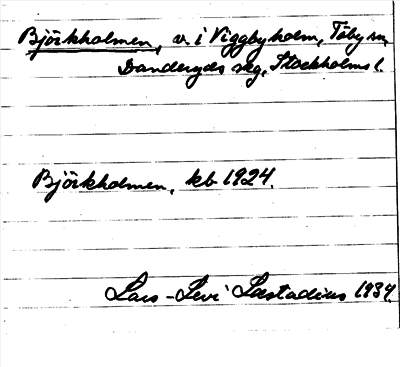 Björkholmen, v. i Viggbyholm, Täby sn,
Danderyds skg, Stockholms l.
Björkholmen, kb 1924.
Lars-Levi Læstadius 1934